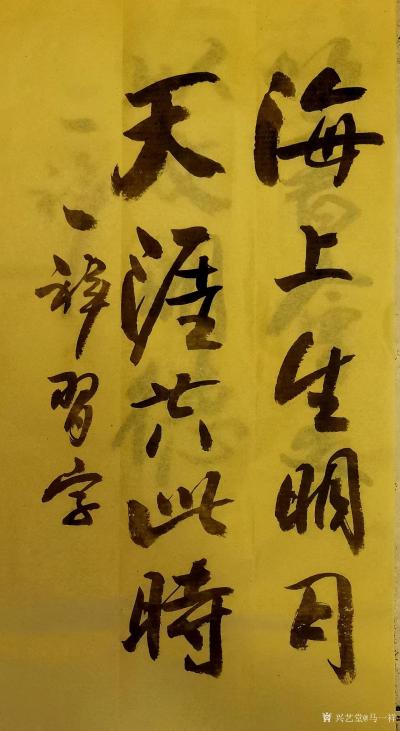 海上生明月
天涯共此時
一祥習字
兴艺堂@马一祥